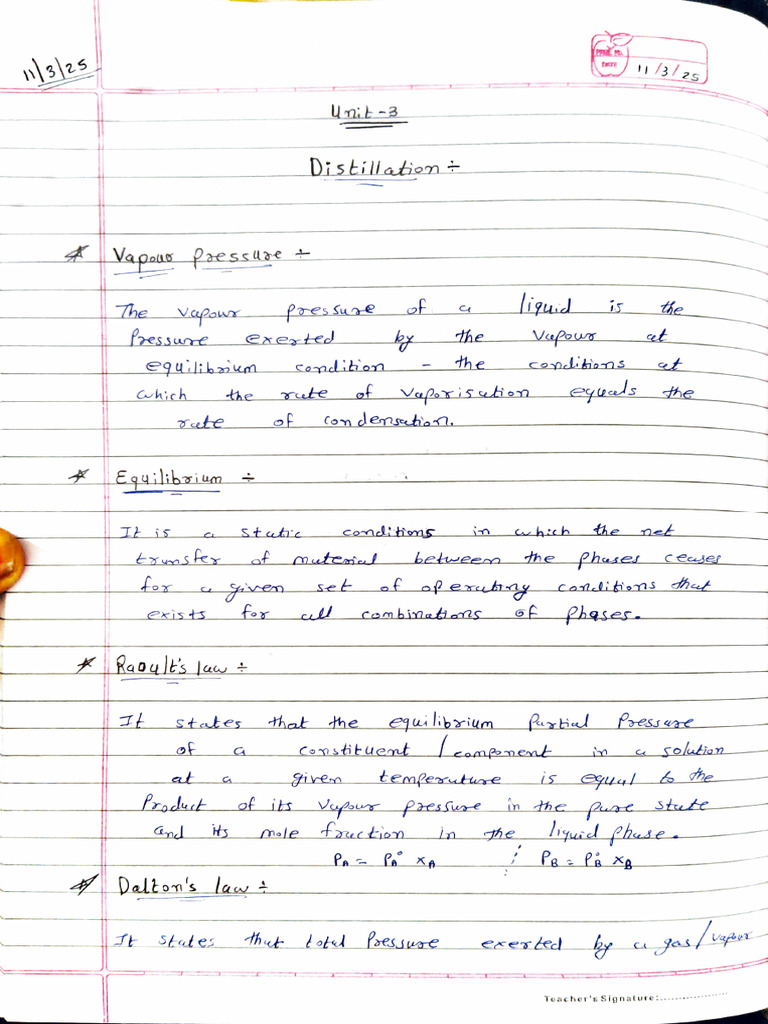 11/3/25
PAGE NO.
DATE 11/3/25
Unit-3
Distillation ÷
* Vapour pressure ÷
The vapour pressure of a liquid is the
Pressure exerted by the vapour at
equilibrium condition - the conditions at
which the rate of vaporisation equals the
rate of condensation.
* Equilibrium ÷
It is a static conditions in which the net
transfer of material between the phases ceases
for a given set of operating conditions that
exists for all combinations of phases.
* Raoult's law ÷
It states that the equilibrium Partial Pressure
of a constituent / component in a solution
at a given temperature is equal to the
Product of its vapour pressure in the pure state
and its mole fraction in the liquid phase.
PA = PA° XA ; PB = PB° XB
* Dalton's law ÷
It states that total Pressure exerted by a gas/vapour
Teacher's Signature:..................